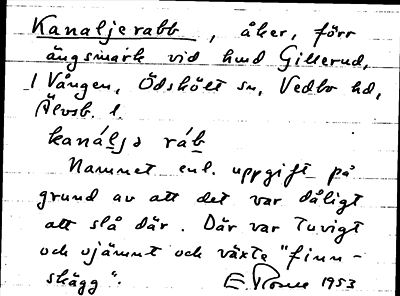 Kanaljerabb, åker, förr
ängsmark vid hmd Gillerud,
1 Vången, Ödskölt sn, Vedbo hd,
Älvsb. l.
kanáljə ráb
Namnet enl. uppgift på
grund av att det var dåligt
att slå där. Där var tuvigt
och ojämnt och växte "finn-
skägg".  E. 1953